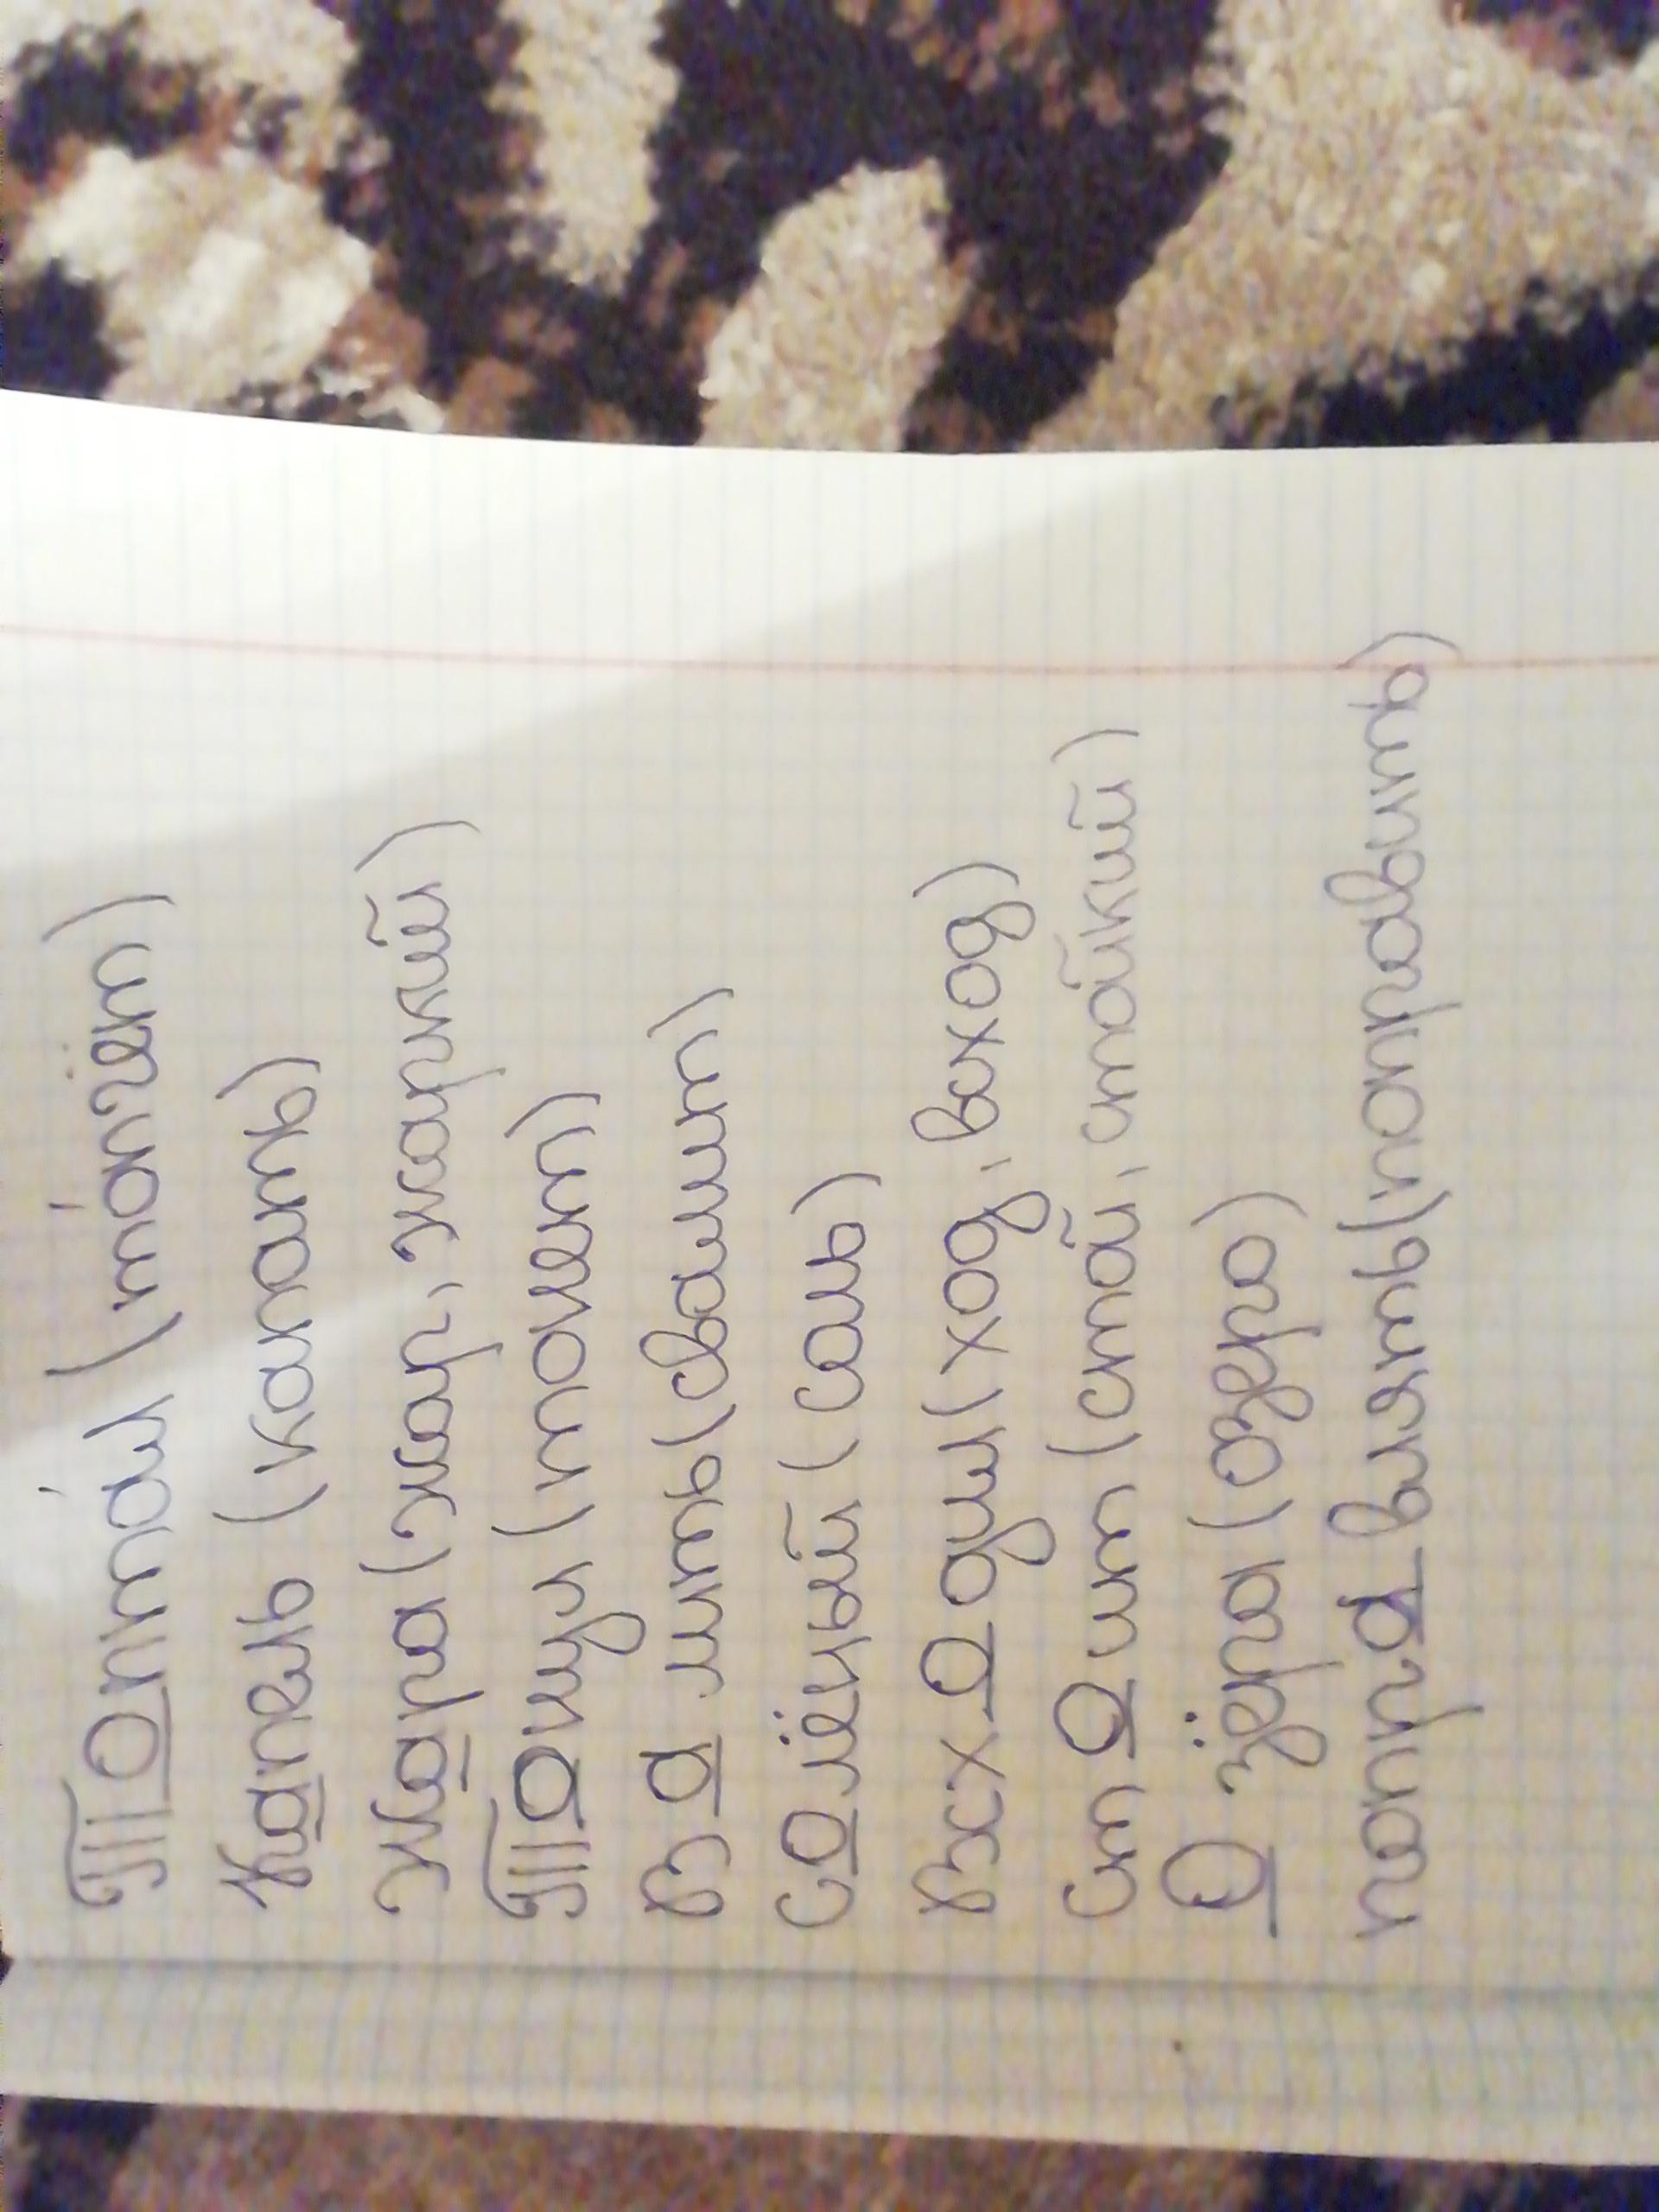 Топтáл (тóпчёт)
капель (капать)
жара (жар, жаркий)
Точку (точен)
в а лить (свалит)
солёный (соль)
всх о ды (ход, вход)
ст о ит (стой, стойкий)
о зёра (озеро)
попр а влять (поправить)